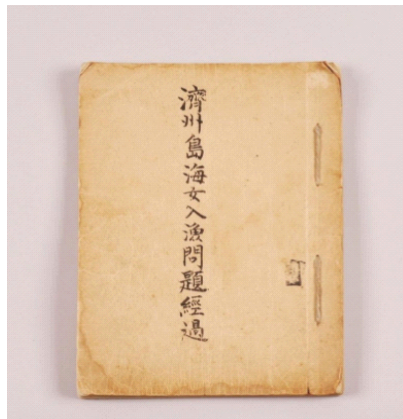 濟州島海女入漁問題經過